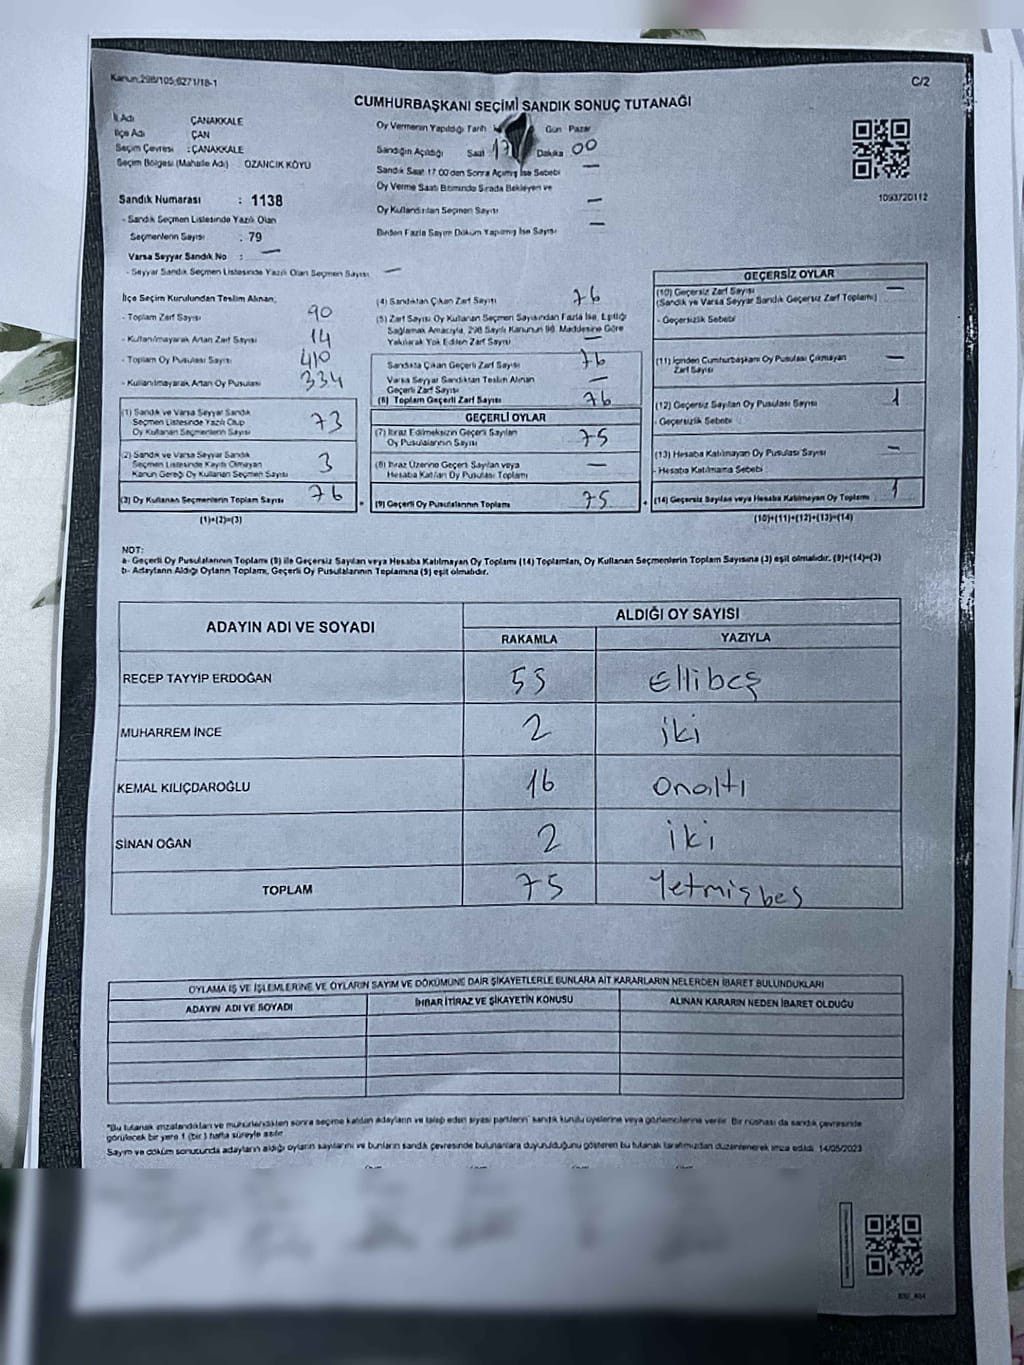 Kanun:298/105,6271/18-1
C/2
CUMHURBAŞKANI SEÇİMİ SANDIK SONUÇ TUTANAĞI
İl Adı ÇANAKKALE
İlçe Adı ÇAN
Seçim Çevresi : ÇANAKKALE
Seçim Bölgesi (Mahalle Adı) : OZANCIK KÖYÜ
Sandık Numarası : 1138
- Sandık Seçmen Listesinde Yazılı Olan
Seçmenlerin Sayısı : 79
Varsa Seyyar Sandık No : —
- Seyyar Sandık Seçmen Listesinde Yazılı Olan Seçmen Sayısı —
Oy Vermenin Yapıldığı Tarih Gün Pazar
Sandığın Açıldığı Saat 17 Dakika 00
Sandık Saat 17.00'den Sonra Açılmış İse Sebebi —
Oy Verme Saati Bitiminde Sırada Bekleyen ve
Oy Kullandırılan Seçmen Sayısı —
Birden Fazla Sayım Döküm Yapılmış İse Sayısı —
1093720112
İlçe Seçim Kurulundan Teslim Alınan;
- Toplam Zarf Sayısı 90
- Kullanılmayarak Artan Zarf Sayısı 14
- Toplam Oy Pusulası Sayısı 410
- Kullanılmayarak Artan Oy Pusulası 334
(1) Sandık ve Varsa Seyyar Sandık
Seçmen Listesinde Yazılı Olup
Oy Kullanan Seçmenlerin Sayısı 73
(2) Sandık ve Varsa Seyyar Sandık
Seçmen Listesinde Kayıtlı Olmayan
Kanun Gereği Oy Kullanan Seçmen Sayısı 3
(3) Oy Kullanan Seçmenlerin Toplam Sayısı 76
(1)+(2)=(3)
(4) Sandıktan Çıkan Zarf Sayısı 76
(5) Zarf Sayısı Oy Kullanan Seçmen Sayısından Fazla İse, Eşitliği
Sağlamak Amacıyla, 298 Sayılı Kanunun 98. Maddesine Göre
Yakılarak Yok Edilen Zarf Sayısı —
Sandıkta Çıkan Geçerli Zarf Sayısı 76
Varsa Seyyar Sandıktan Teslim Alınan
Geçerli Zarf Sayısı —
(6) Toplam Geçerli Zarf Sayısı 76
GEÇERLİ OYLAR
(7) İtiraz Edilmeksizin Geçerli Sayılan
Oy Pusulalarının Sayısı 75
(8) İtiraz Üzerine Geçerli Sayılan veya
Hesaba Katılan Oy Pusulası Toplamı —
(9) Geçerli Oy Pusulalarının Toplamı 75
GEÇERSİZ OYLAR
(10) Geçersiz Zarf Sayısı —
(Sandık ve Varsa Seyyar Sandık Geçersiz Zarf Toplamı)
- Geçersizlik Sebebi
(11) İçinden Cumhurbaşkanı Oy Pusulası Çıkmayan
Zarf Sayısı —
(12) Geçersiz Sayılan Oy Pusulası Sayısı 1
- Geçersizlik Sebebi
(13) Hesaba Katılmayan Oy Pusulası Sayısı —
- Hesaba Katılmama Sebebi
(14) Geçersiz Sayılan veya Hesaba Katılmayan Oy Toplamı 1
(10)+(11)+(12)+(13)=(14)
NOT:
a- Geçerli Oy Pusulalarının Toplamı (9) ile Geçersiz Sayılan veya Hesaba Katılmayan Oy Toplamı (14) Toplamları, Oy Kullanan Seçmenlerin Toplam Sayısına (3) eşit olmalıdır. (9)+(14)=(3)
b- Adayların Aldığı Oyların Toplamı, Geçerli Oy Pusulalarının Toplamına (9) eşit olmalıdır.
ADAYIN ADI VE SOYADI ALDIĞI OY SAYISI
RAKAMLA YAZIYLA
RECEP TAYYİP ERDOĞAN 55 Ellibeş
MUHARREM İNCE 2 iki
KEMAL KILIÇDAROĞLU 16 onaltı
SİNAN OĞAN 2 iki
TOPLAM 75 Yetmişbeş
OYLAMA İŞ VE İŞLEMLERİNE VE OYLARIN SAYIM VE DÖKÜMÜNE DAİR ŞİKAYETLERLE BUNLARA AİT KARARLARIN NELERDEN İBARET BULUNDUKLARI
ADAYIN ADI VE SOYADI İHBAR İTİRAZ VE ŞİKAYETİN KONUSU ALINAN KARARIN NEDEN İBARET OLDUĞU
"Bu tutanak imzalandıktan ve mühürlendikten sonra seçime katılan adayların ve talep eden siyasi partilerin sandık kurulu üyelerine veya gözlemcilerine verilir. Bir nüshası da sandık çevresinde
görülecek bir yere 1 (bir ) hafta süreyle asılır
Sayım ve döküm sonucunda adayların aldığı oyların sayılarını ve bunların sandık çevresinde bulunanlara duyurulduğunu gösteren bu tutanak tarafımızdan düzenlenerek imza edildi. 14/05/2023